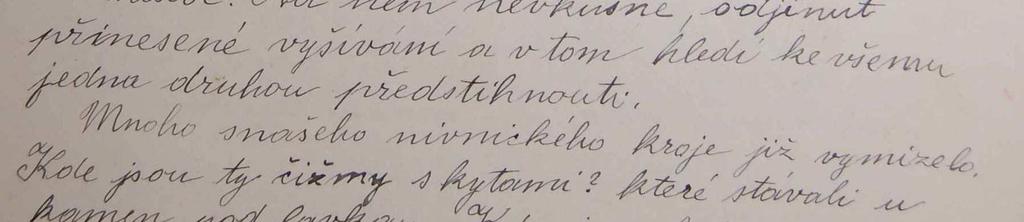 nem nevkusné, odjinut
přinesené vyšívání a v tom hledí ke všemu
jedna druhou předstihnouti.
Mnoho snašeho nivnického kroje již vymizelo.
Kde jsou ty čižmy s kytami? které stávali u
kamen pod